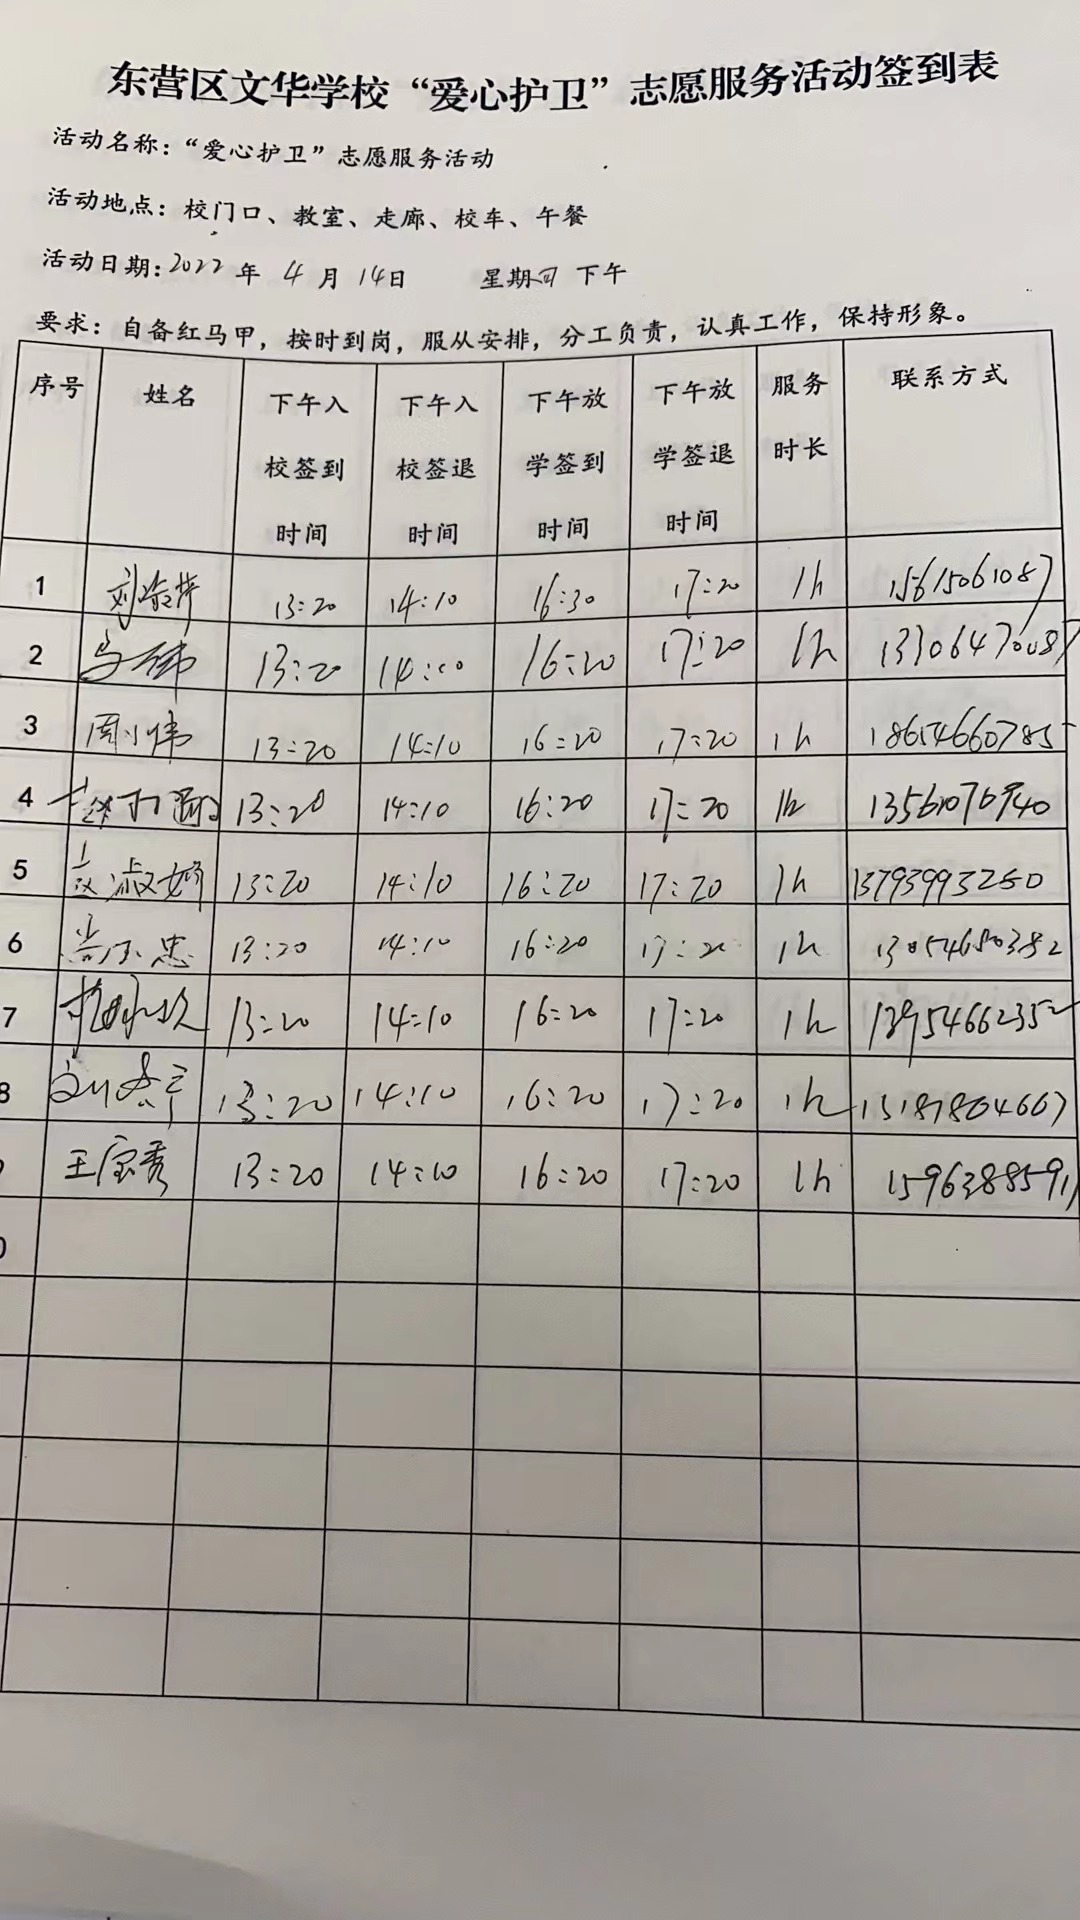 东营区文华学校“爱心护卫”志愿服务活动签到表
活动名称：“爱心护卫”志愿服务活动
活动地点：校门口、教室、走廊、校车、午餐
活动日期：2022年 4月 14日 星期四 下午
要求：自备红马甲，按时到岗，服从安排，分工负责，认真工作，保持形象。
序号 姓名 下午入校签到时间 下午入校签退时间 下午放学签到时间 下午放学签退时间 服务时长 联系方式
1 13:20 14:10 16:30 17:20 1h 15615061087
2 马伟 13:20 14:10 16:20 17:20 1h 13306470087
3 周小伟 13:20 14:10 16:20 17:20 1h 18654660785
4 13:20 14:10 16:20 17:20 1h
5 13:20 14:10 16:20 17:20 1h 13793993250
6 13:20 14:10 16:20 17:20 1h 13054680382
7 13:20 14:10 16:20 17:20 1h 13954662352
8 13:20 14:10 16:20 17:20 1h 15187804667
王宝秀 13:20 14:10 16:20 17:20 1h 15963885911
0